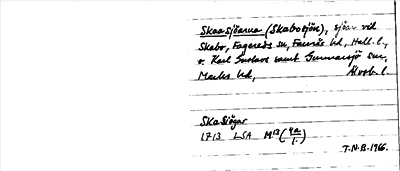 Skaasjöarna (Skabosjön), sjöar vid
Skabo, Fagereds sn, Faurås hd, Hall. l.,
o. Karl Gustavs samt Gunnarsjö snr,
Marks hd, Älvsb. l.
Skasiögar
1713 LSA M13 (42/1.)
T.N.B. 1966.